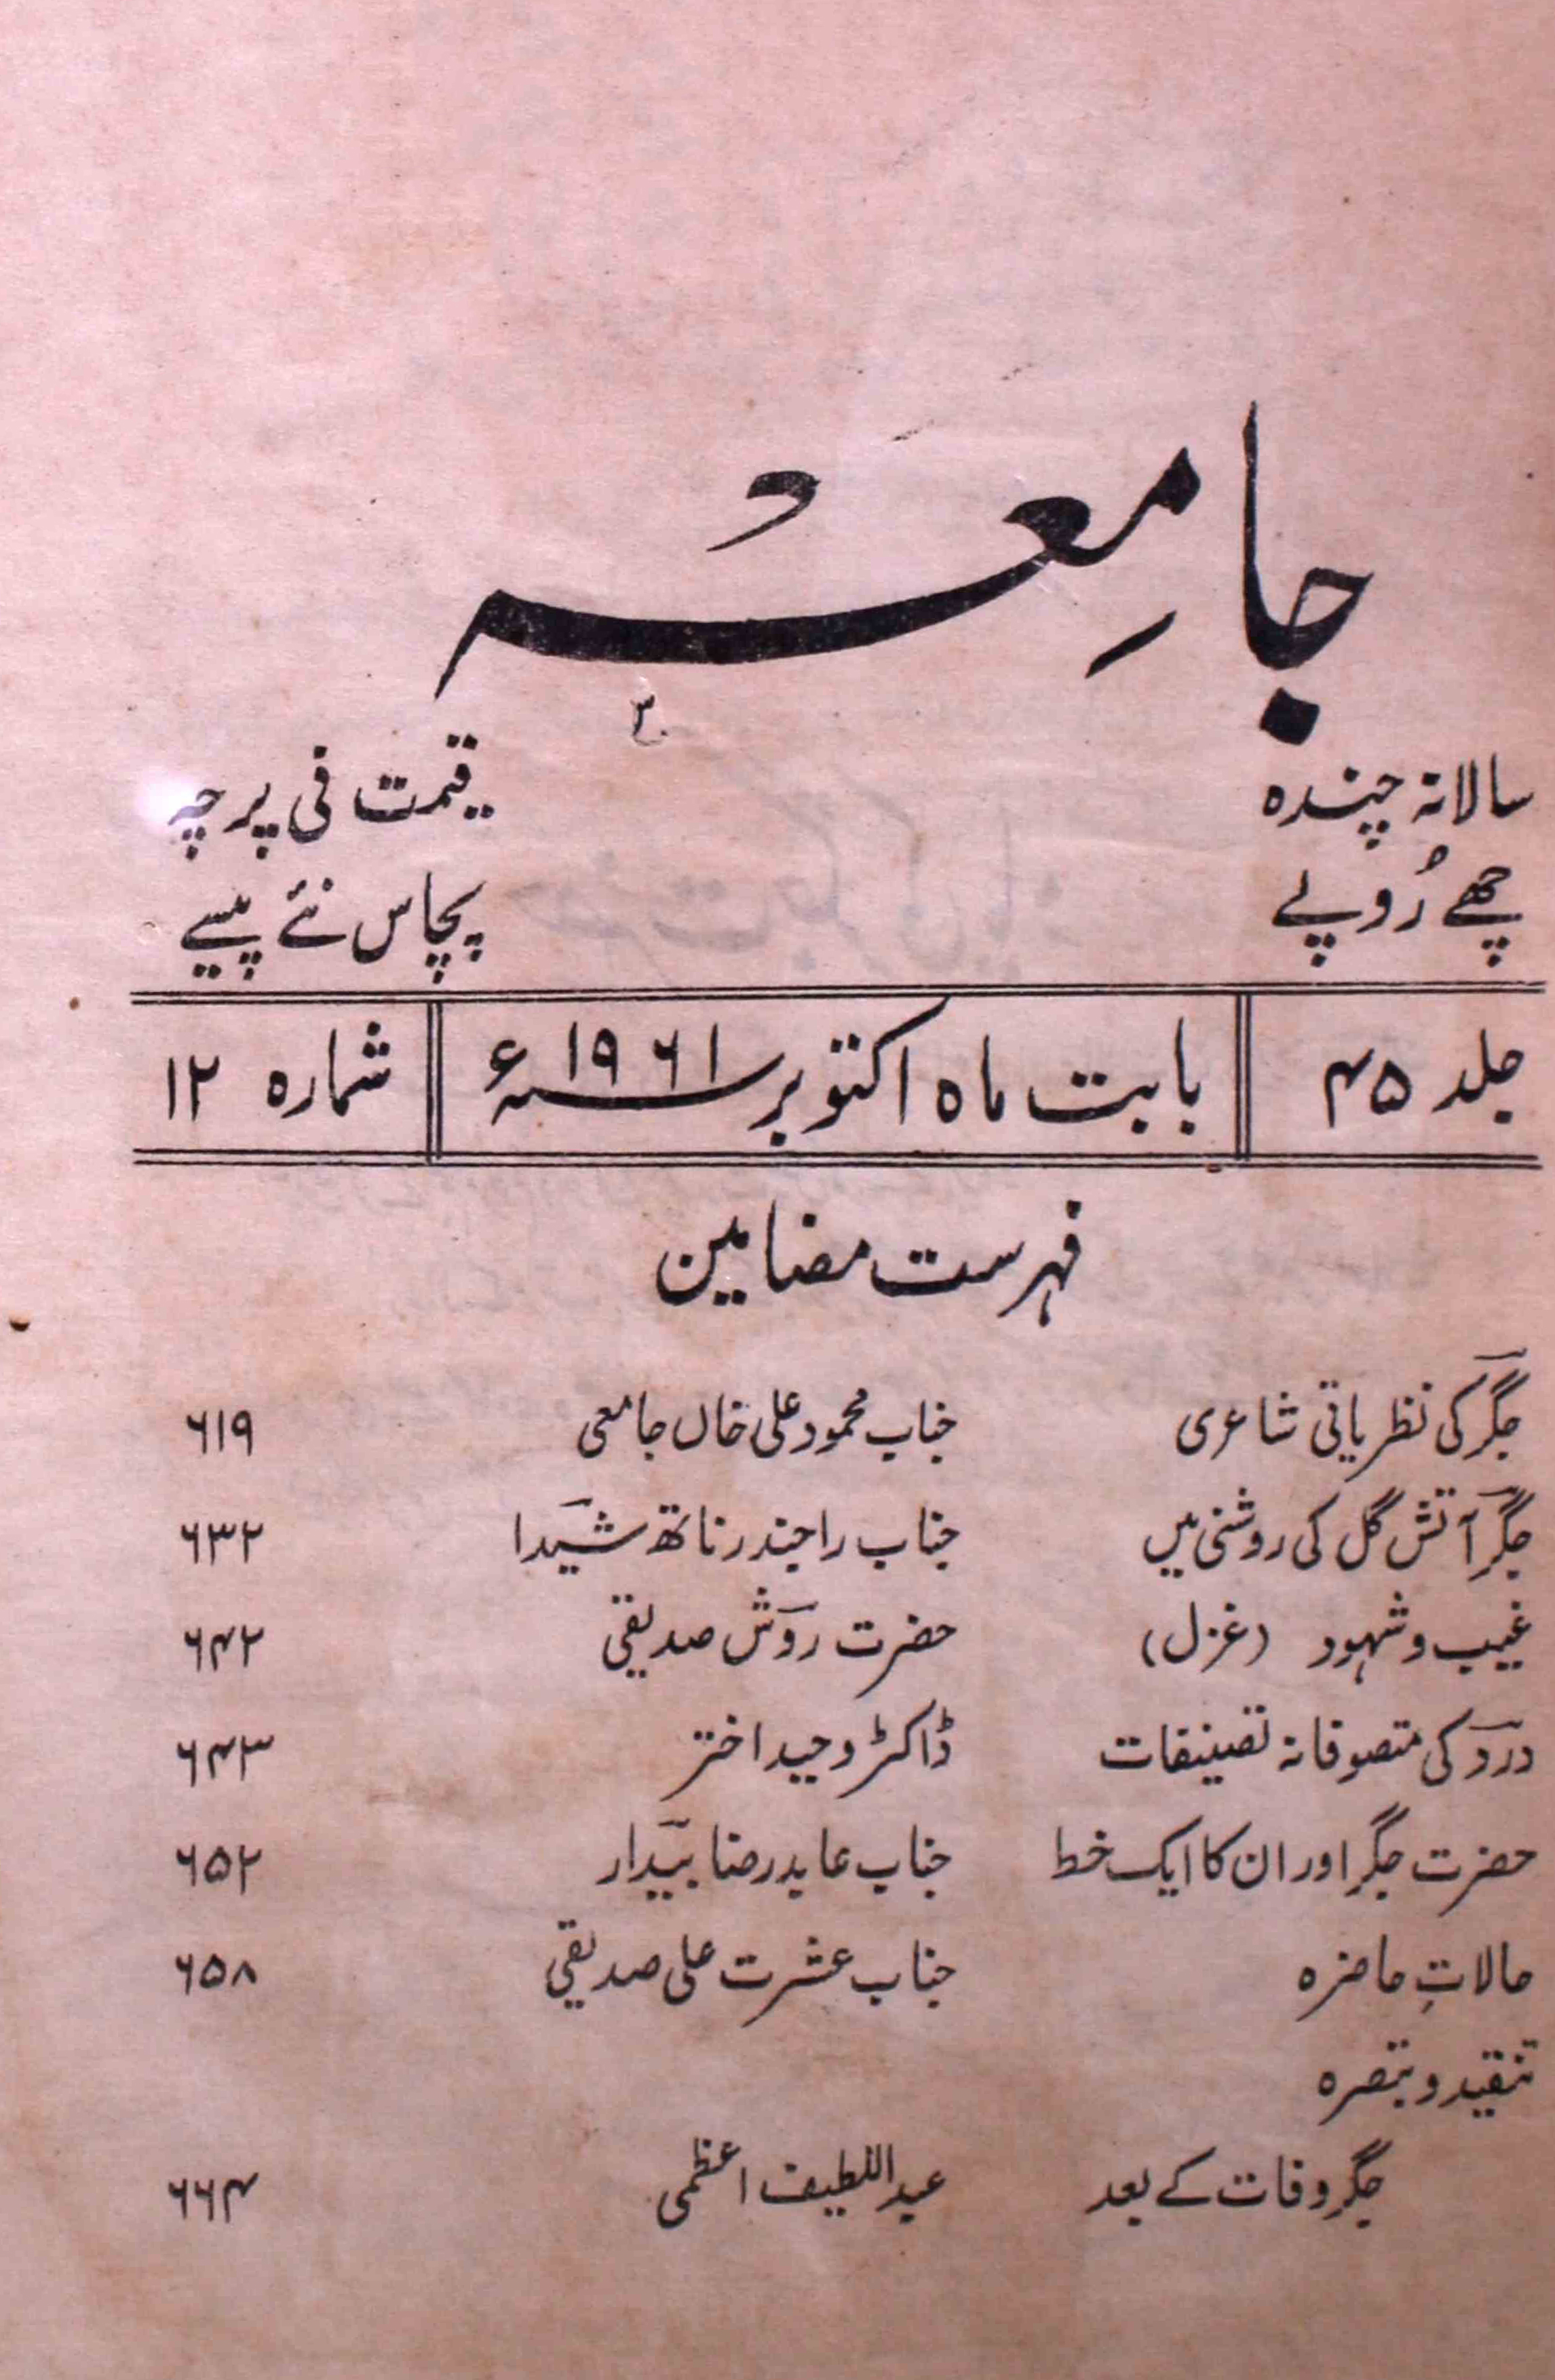 جامعہ
سالانہ چندہ قیمت فی پرچہ
چھے رُوپے پچاس نئے پیسے
جلد ۴۵ بابت ماہ اکتوبر ۱۹۶۱ء شمارہ ۱۲
فہرست مضامین
جگر کی نظریاتی شاعری جناب محمود علی خاں جامعی ۶۱۹
جگر آتش گل کی روشنی میں جناب راجندر ناتھ شیدا ۶۳۲
غیب و شہود (غزل) حضرت روش صدیقی ۶۴۲
درد کی متصوفانہ تصنیفات ڈاکٹر وحید اختر ۶۴۳
حضرت جگر اور ان کا ایک خط جناب عابد رضا بیدار ۶۵۲
حالاتِ حاضرہ جناب عشرت علی صدیقی ۶۵۸
تنقید و تبصرہ
جگر وفات کے بعد عبداللطیف اعظمی ۶۶۴